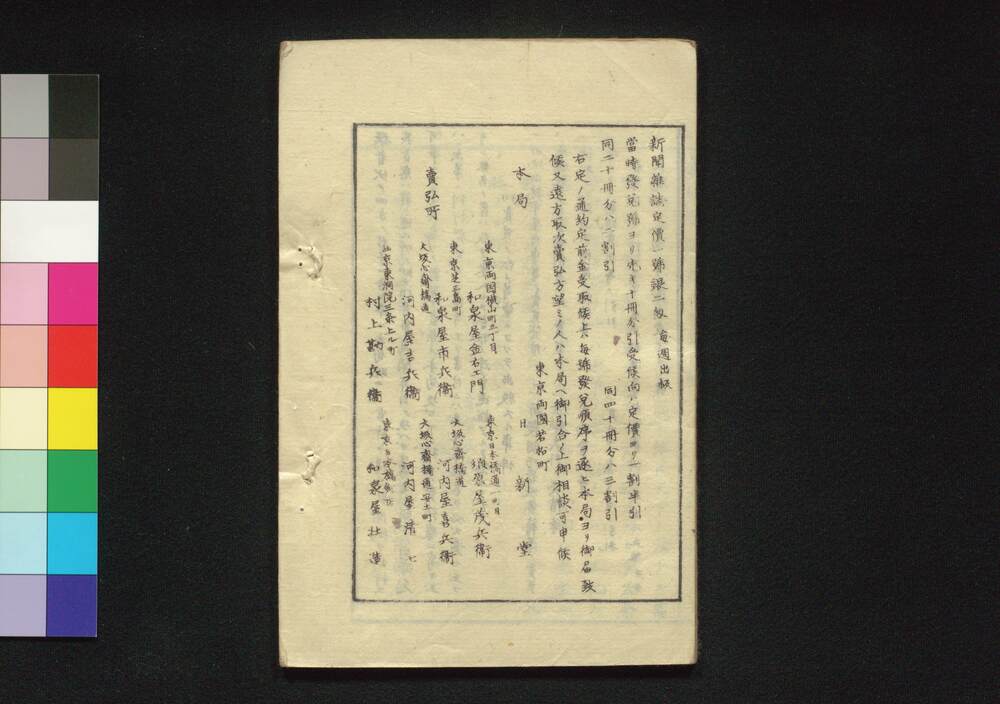 新聞雜誌定價一號銀二匁 毎週出板
當時發兌號ヨリ先キ十冊分引受候向ハ定價ヨリ一割半引
同二十冊分ハ二割引 同四十冊分ハ三割引
右定ノ通約定前金受取候上ハ毎號發兌順序ヲ逐ヒ本局ヨリ御届致
候又遠方取次賣弘方望ミノ人ハ本局ヘ御引合ノ上御相談可申候
東京両國若松町
本局 日新堂
東京両国横山町三丁目
和泉屋金右エ門
東京日本橋通一丁目
須原屋茂兵衛
賣弘所
東京芝三島町
和泉屋市兵衛
大坂心齋橋通
河内屋喜兵衛
大坂心齋橋通
河内屋吉兵衛
大坂心齋橋通安土町
河内屋
西京東洞院三条上ル町
村上勘兵衛
東京
和泉屋壮造